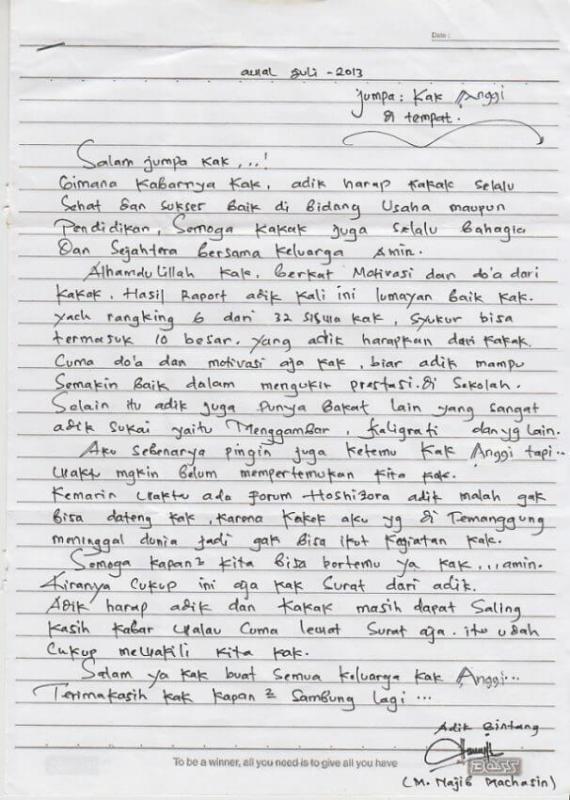 Date :
awal Juli - 2013
Jumpa : Kak Anggi
di tempat.
Salam jumpa kak, ..!
Gimana kabarnya kak, adik harap kakak selalu
sehat dan sukses baik di Bidang Usaha maupun
Pendidikan, Semoga kakak juga selalu Bahagia
Dan Sejahtera bersama keluarga Amin.
Alhamdulillah kak, berkat Motivasi dan do'a dari
kakak, Hasil Raport adik kali ini lumayan baik kak.
yach rangking 6 dari 32 siswa kak, syukur bisa
termasuk 10 besar. yang adik harapkan dari kakak.
Cuma do'a dan motivasi aja kak, biar adik mampu
Semakin Baik dalam mengukir prestasi di sekolah.
Selain itu adik juga punya Bakat lain yang sangat
adik sukai yaitu Menggambar, kaligrafi dan yg lain.
Aku sebenarya pingin juga ketemu kak Anggi tapi..
waktu mgkin Belum mempertemukan kita kak.
Kemarin waktu ada forum Hoshizora adik malah gak
bisa dateng kak, karena Kakek aku yg di Temanggung
meninggal dunia jadi gak bisa ikut kegiatan kak.
Semoga kapan² kita bisa bertemu ya kak ... amin.
Kiranya Cukup ini aja kak Surat dari adik.
Adik harap adik dan kakak masih dapat Saling
kasih kabar walau Cuma lewat Surat aja. itu udah
Cukup mewakili kita kak.
Salam ya kak buat Semua keluarga kak Anggi...
Terimakasih kak kapan² Sambung lagi ...
Adik Bintang
To be a winner, all you need is to give all you have
Boss
(M. Najib Machasin)